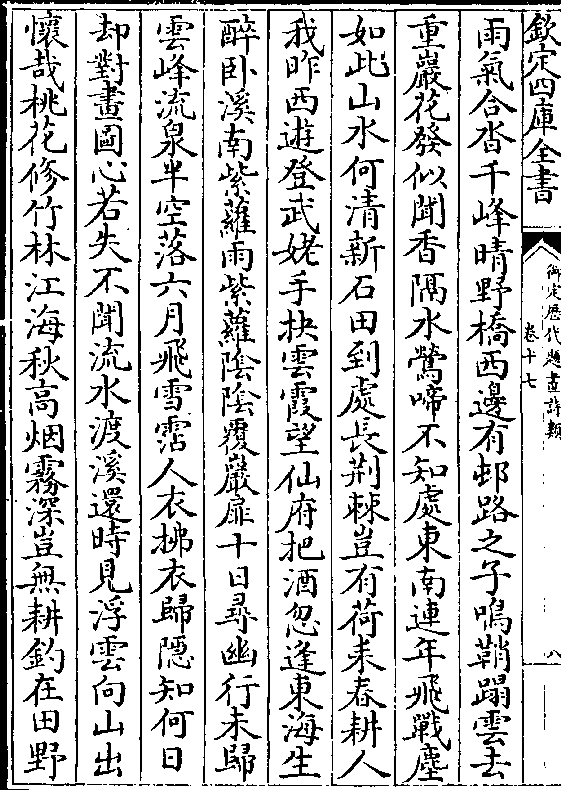 欽定四庫全書
御定歷代題畫詩類
卷十七
八
雨氣合沓千峰晴野橋西邊有邨路之子鳴鞘躡雲去
重巖花發似聞香隔水鶯啼不知處東南連年飛戰塵
如此山水何清新石田到處長荆棘豈有荷耒春耕人
我昨西遊登武姥手抉雲霞望仙府把酒忽逢東海生
醉卧溪南紫蘿雨紫蘿陰陰覆巖扉十日尋幽行未歸
雲峰流泉半空落六月飛雪霑人衣拂衣歸隱知何日
却對畫圖心若失不聞流水渡溪還時見浮雲向山出
懷哉桃花修竹林江海秋高烟霧深豈無耕釣在田野